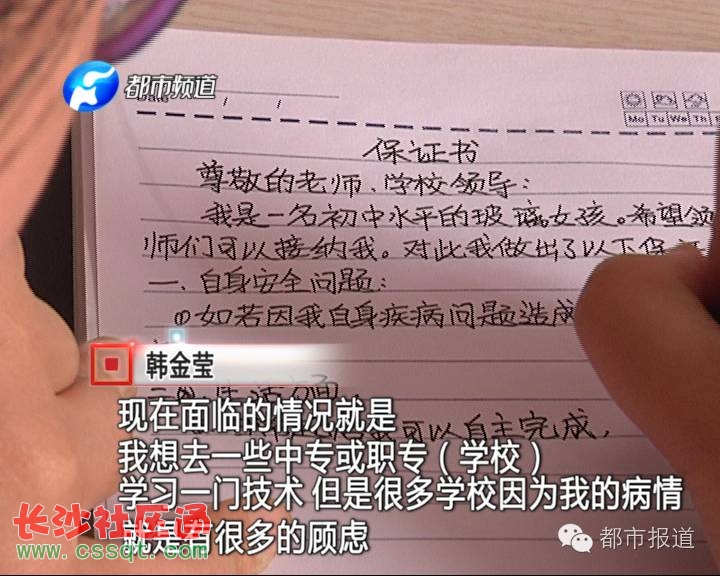 都市频道
Date / /
Mo Tu We Th
保证书
尊敬的老师、学校领导:
我是一名初中水平的玻璃女孩。希望领
师们可以接纳我。对此我做出了以下保证
一、自身安全问题:
①如若因我自身疾病问题造成
韩金莹
可以自主完成,
现在面临的情况就是
我想去一些中专或职专(学校)
学习一门技术 但是很多学校因为我的病情
就是有很多的顾虑
长沙社区通
www.cssqt.com
都市报道